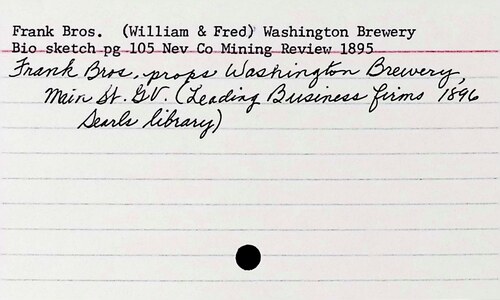 Frank Bros. (William & Fred) Washington Brewery
Bio sketch pg 105 Nev Co Mining Review 1895
Frank Bros, props Washington Brewery,
Main St. G.V. (Leading Business firms 1896
Searls library)